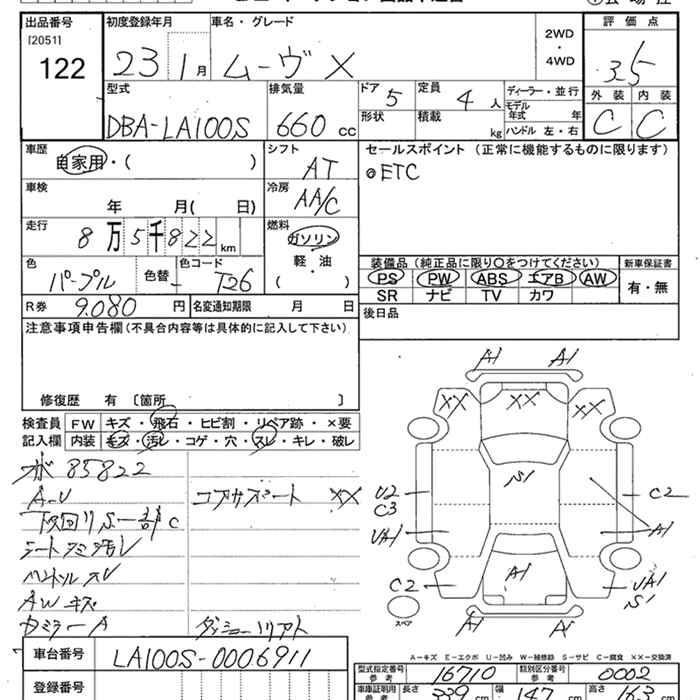 出品番号 初度登録年月 車名・グレード 評価点
[2051]
122 23 1月 ムーヴ X 2WD・4WD 3.5
型式 排気量 ドア 5 定員 4人 ディーラー・並行 外装 内装
DBA-LA100S 660cc 形状 積載 kg モデル年式 年 C C
ハンドル 左・右
車歴 自家用・( ) シフト AT セールスポイント (正常に機能するものに限ります)
◎ETC
車検 年 月( 日) 冷房 AA/C
走行 8万5千822km 燃料 ガソリン
軽・油
( )
色 パープル 色替 色コード T26
装備品 (純正品に限り○をつけてください) 新車保証書
PS PW ABS エアB AW 有・無
SR ナビ TV カワ
R券 9.080円 名変通知期限 月 日 後日品
注意事項申告欄 (不具合内容等は具体的に記入して下さい)
修復歴 有 〔箇所 〕
検査員 FW キズ・飛石・ヒビ割・リペア跡・×要
記入欄 内装 キズ・汚レ・コゲ・穴・スレ・キレ・破レ
85822
コアサポート XX
下回りS一部C
シート 汚レ
ハンドル スレ
AW キズ
A1 A1
XX XX XX
S1
U2
C3
C2
UA1
A1
A1
C2
UA1
S1
スペア
A1 A1
A-キズ E-エクボ U-凹み W-補修跡 S-サビ C-腐食 XX-交換済
車台番号 LA100S-0006911
登録番号
型式指定番号 参考 16710 類別区分番号 参考 0002
車庫証明用 参考 長さ 339cm 幅 147cm 高さ 163cm